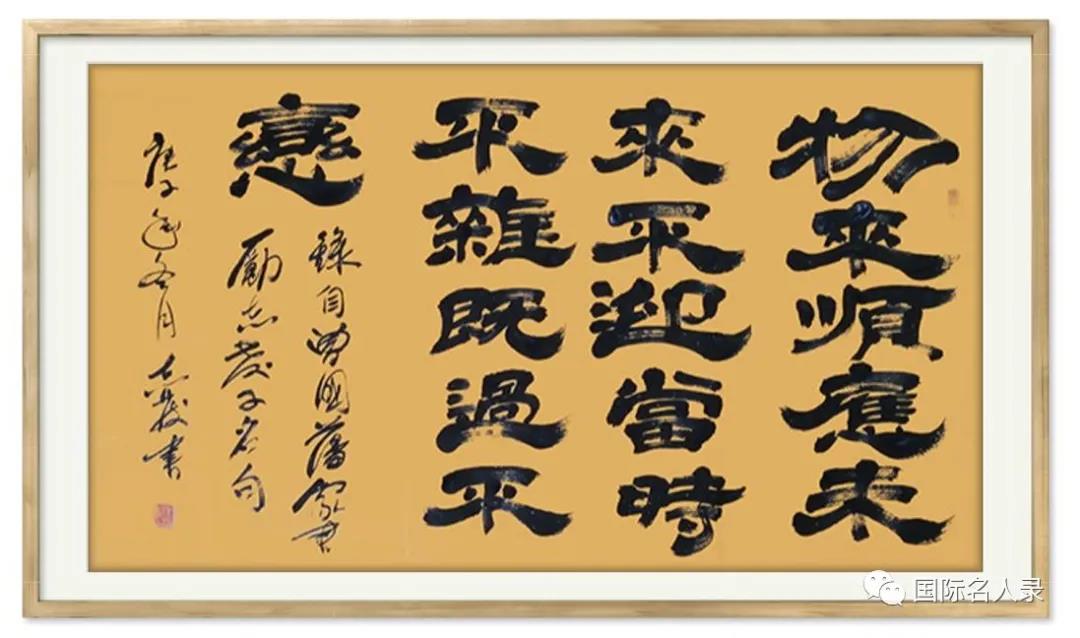 物來順應未
來不迎當時
不雜既過不
戀
錄自曾國藩家書
勵志教子名句
庚子年冬月 志書
国际名人录